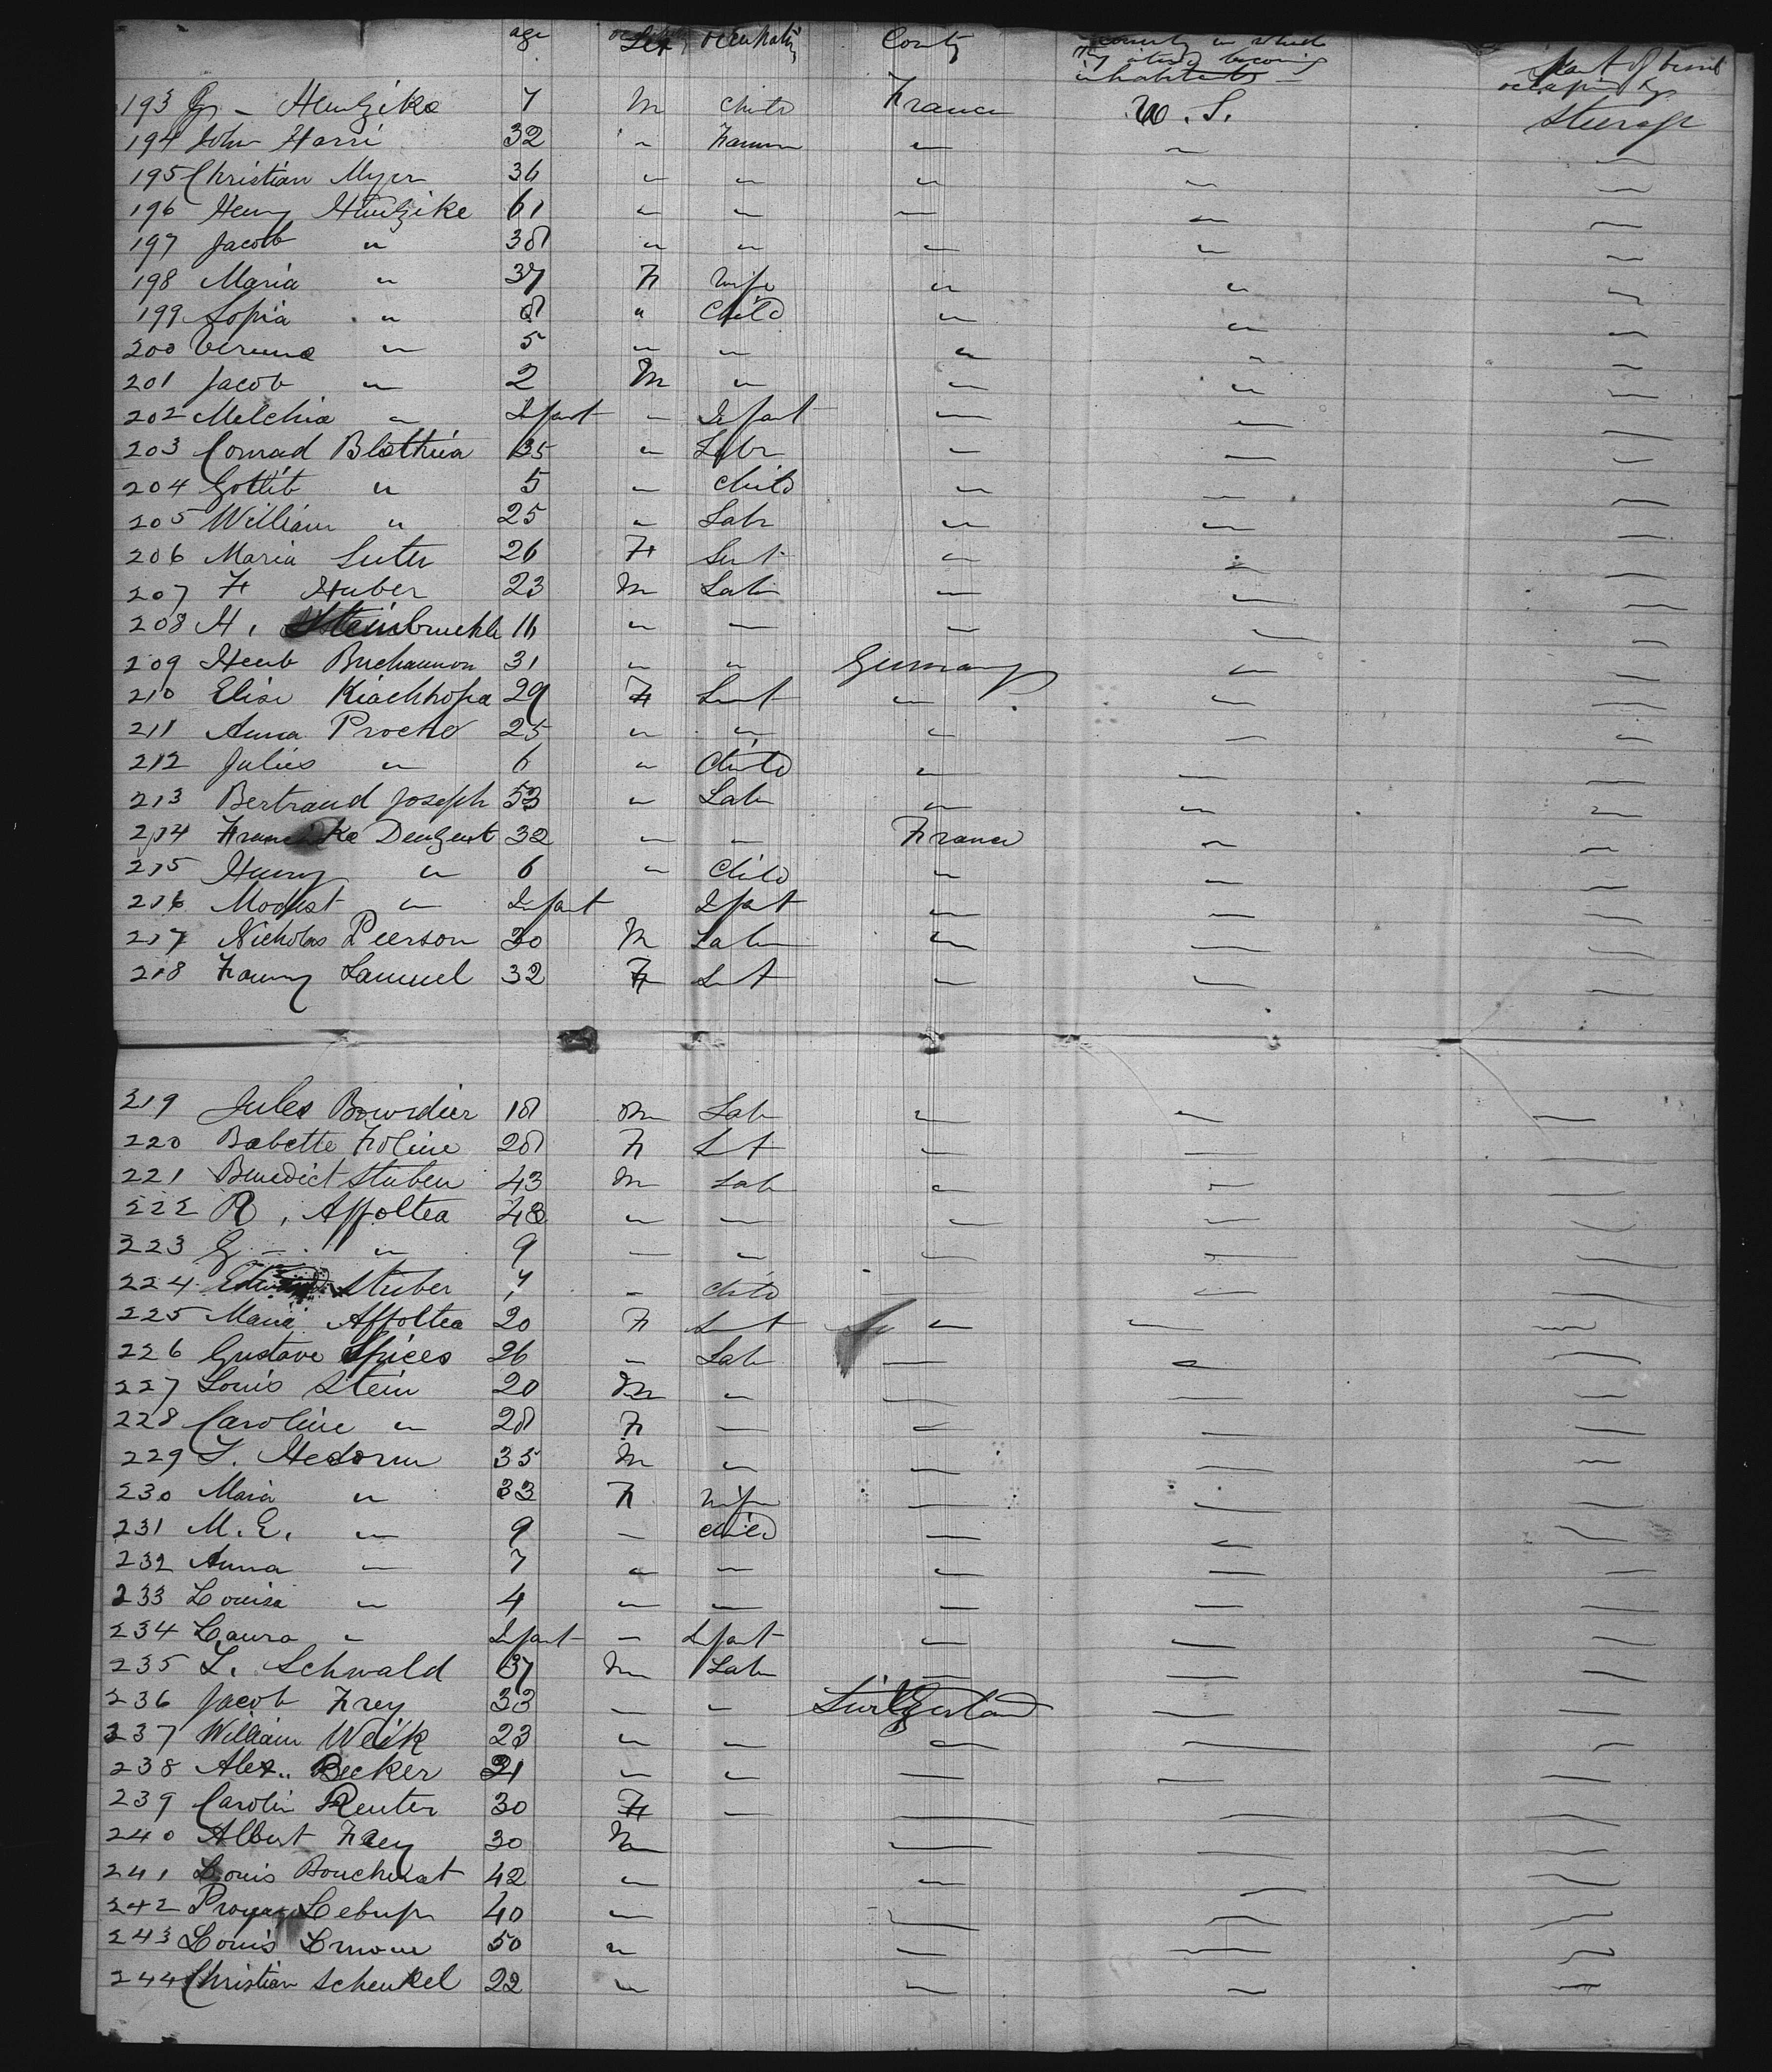 age Sex occupation County County in which they intend becoming inhabitants Part of vessel occupied by
193 G. - Huntzike 7 M Child France U.S. Steerage
194 John Harri 32 " Farmer " " "
195 Christian Myer 36 " " " " "
196 Henry Huntzike 61 " " " " "
197 Jacob " 38 " " " " "
198 Maria " 37 F Wife " " "
199 Sopia " 8 " Child " " "
200 Verena " 5 " " " " "
201 Jacob " 2 M " " " "
202 Melchia " Infant " Infant " " "
203 Conrad Blattnia 35 " Labr " " "
204 Gottlib " 5 " Child " " "
205 William " 25 " Labr " " "
206 Maria Suter 26 F Sert " " "
207 F Huber 23 M Lab " " "
208 H. Steinbruchle 16 " " " " "
209 Henb Buchannon 31 " " Germany " "
210 Elise Kiachhofa 29 F Sert " " "
211 Anna Proche 25 " " " " "
212 Julies " 6 " Child " " "
213 Bertrand Joseph 53 " Lab " " "
214 Deugent 32 " " France " "
215 Henry " 6 " Child " " "
216 Modest " Infant Infant " " "
217 Nicholas Peerson 30 M Lab " " "
218 Fanny Samuel 32 F Sert " " "
219 Jules Bowrdier 18 M Lab " " "
220 Babette Froline 28 F Sert " " "
221 Benedict Stuben 43 M Lab " " "
222 R, Affoltea 48 " " " " "
223 G - " 9 " " " " "
224 Edward Stuber 7 " Child " " "
225 Maria Affoltea 20 F Sert " " "
226 Gustave Spices 26 " Lab " " "
227 Louis Stein 20 M " " " "
228 Caroline " 28 F " " " "
229 S. Hedorm 35 M " " " "
230 Maria " 33 F Wife " " "
231 M. E. " 9 " Child " " "
232 Anna " 7 " " " " "
233 Louisa " 4 " " " " "
234 Laura " Infant " Infant " " "
235 L. Schwald 37 M Lab " " "
236 Jacob Frey 33 " " Switzerland " "
237 William Weik 23 " " " " "
238 Alex.. Becker 21 " " " " "
239 Carolin Reuter 30 F " " " "
240 Albert Frey 30 M " " "
241 Louis Boucherat 42 " " " "
242 40 " " " "
243 Louis 50 " " " "
244 Christian Schenkel 22 " " " "